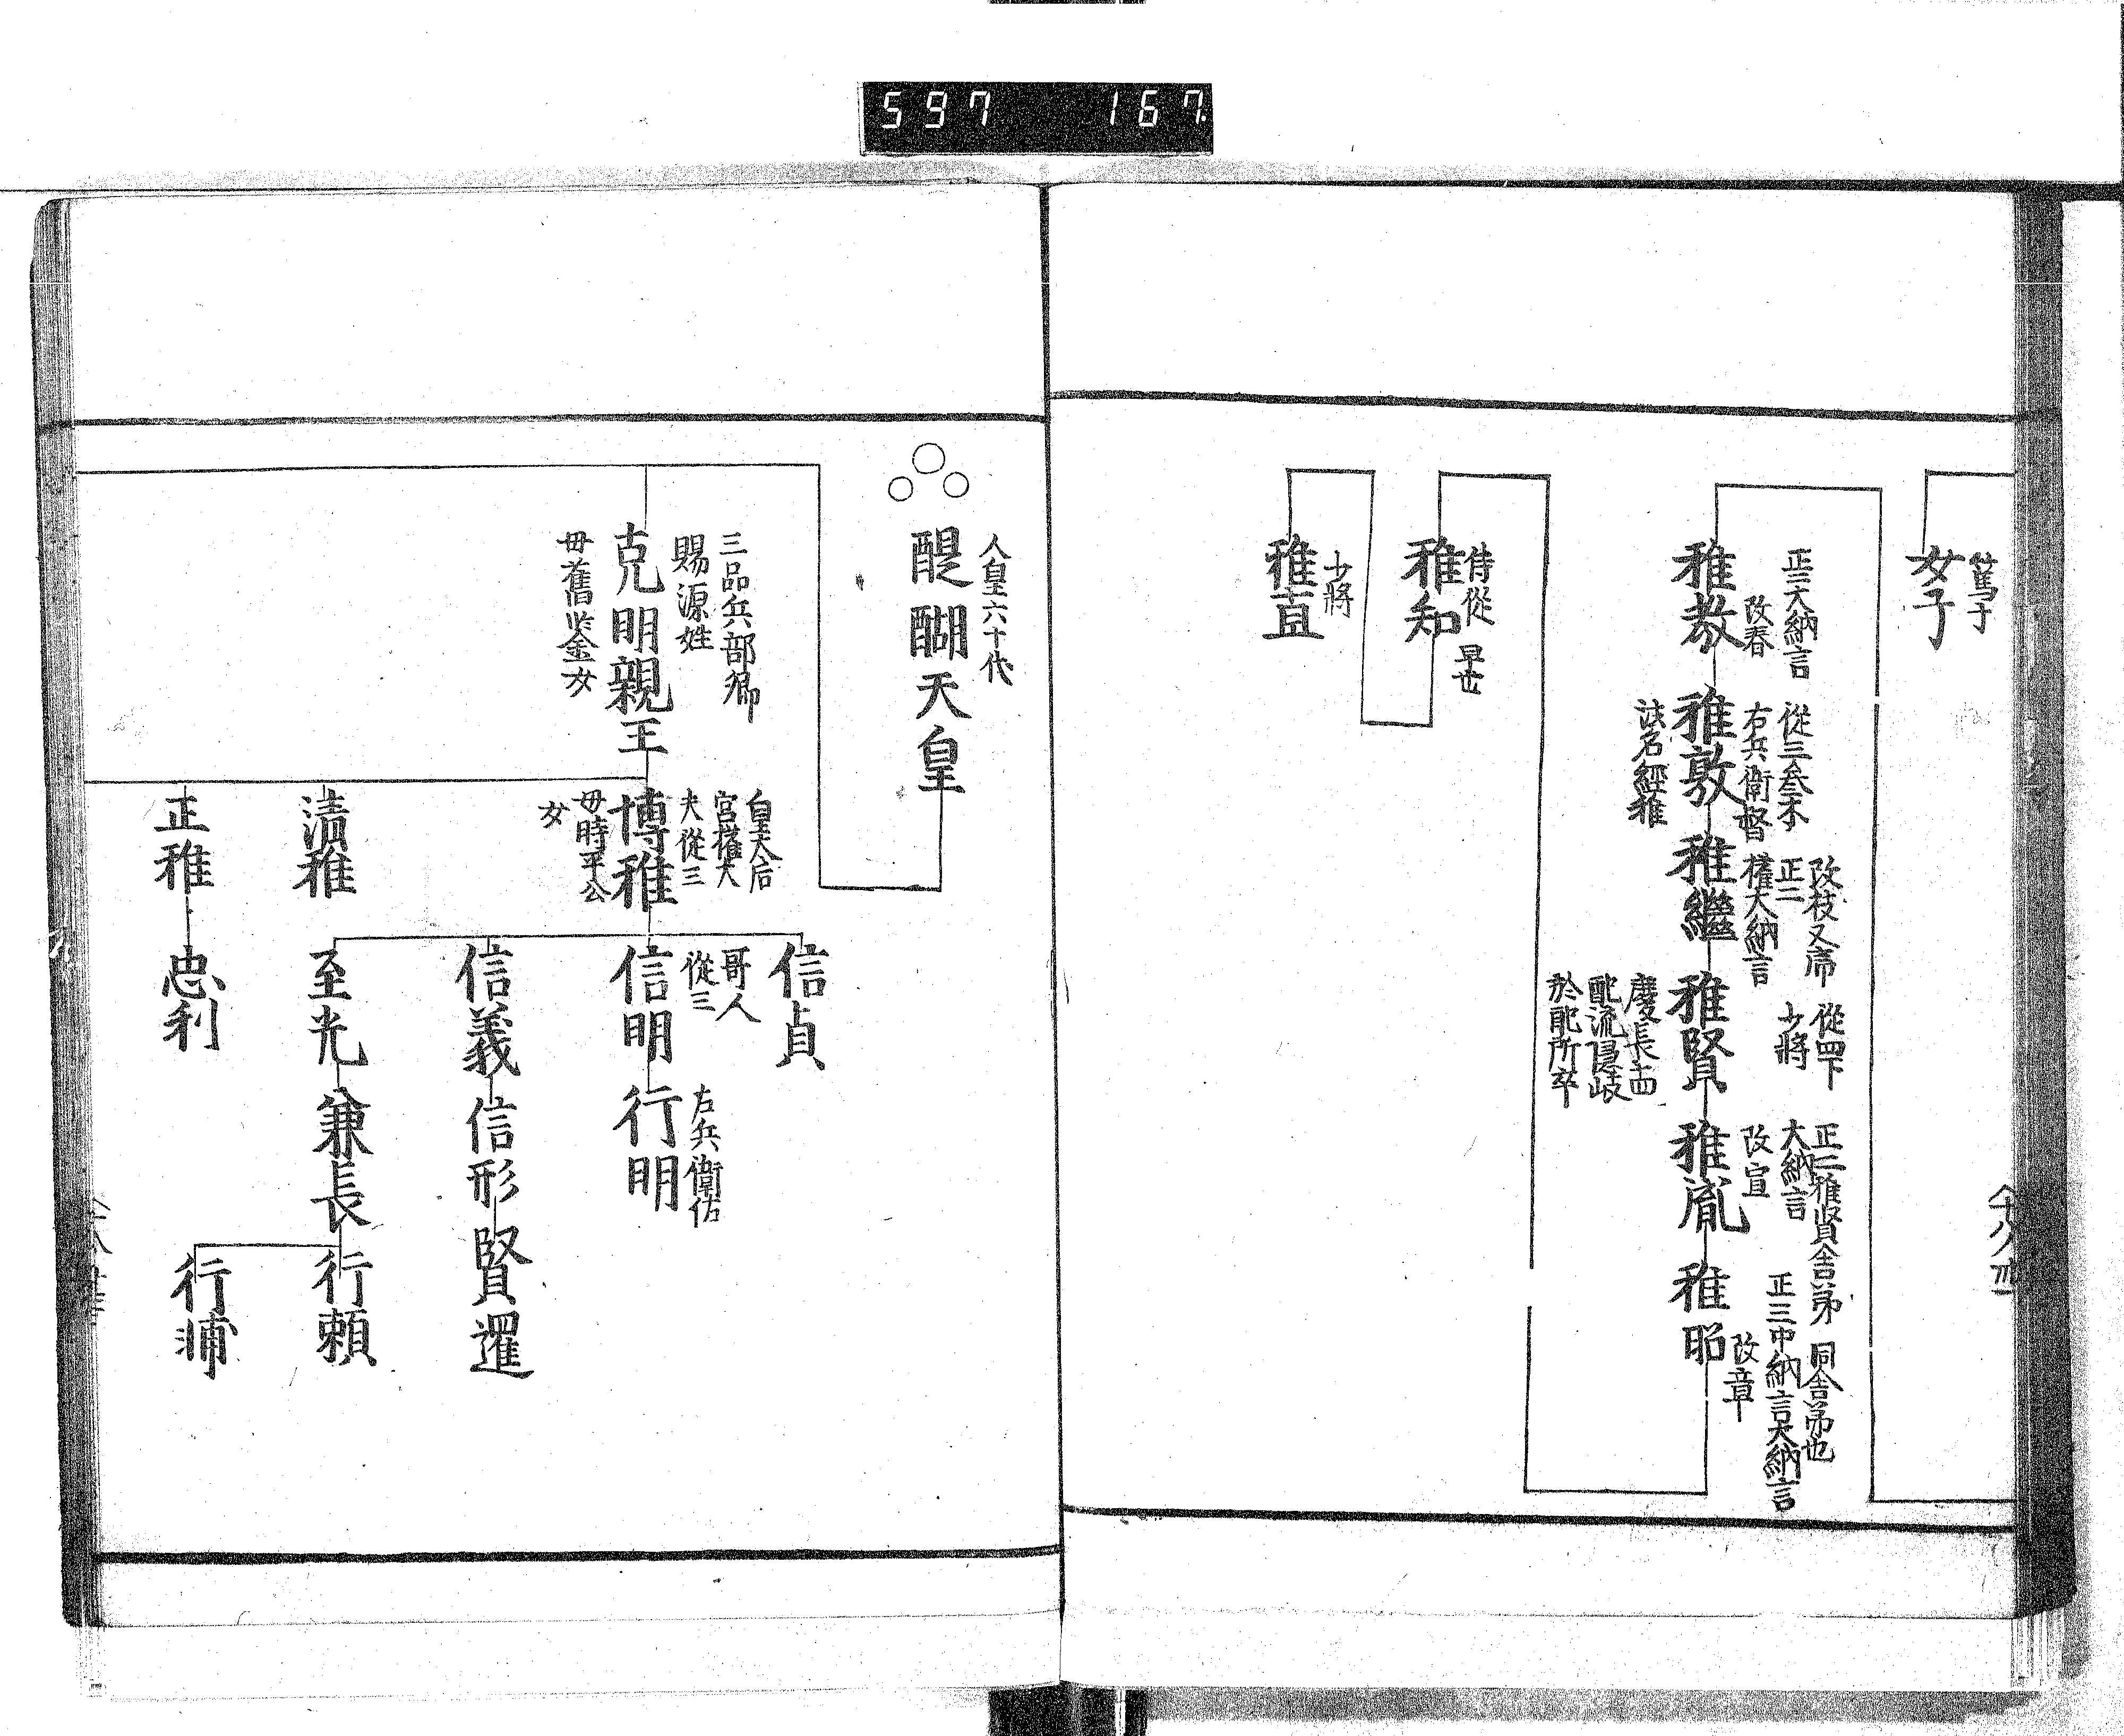 597 167
女子
正三大納言
改春
雅教
從三参木
右兵衛督
雅敦
法名經雅
改枝又席
正二
權大納言
雅繼
從四下
少將
雅賢
慶長十四
配流隠岐
於配所卒
正二雅賢舎弟
大納言
改宣
雅胤
同舎弟也
正三中納言大納言
改章
雅昭
侍從
早世
雅知
少將
雅直
人皇六十代
醍醐天皇
三品兵部卿
賜源姓
克明親王
母舊鑒女
皇太后
宮權大
夫從三
博雅
母時平公
女
信貞
哥人
從三
信明
右兵衛佐
行明
信義
信形
賢暹
至光
兼長
行頼
行浦
清雅
正雅
忠利